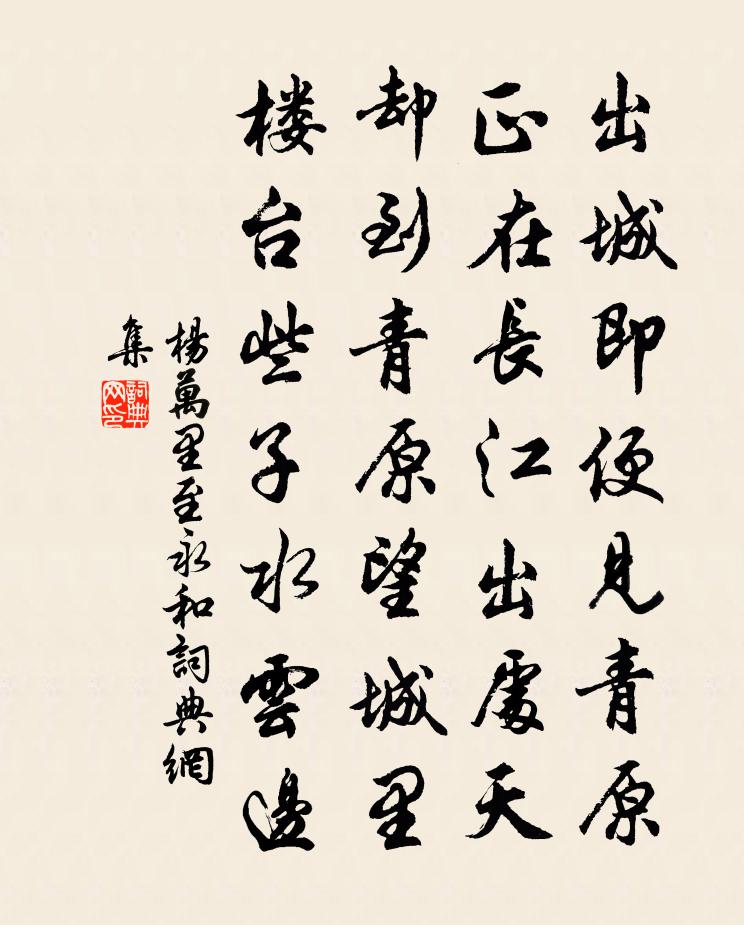 出城即便見青原
正在長江出處天
却到青原望城里
楼台些子水雲邊
楊萬里至永和詞典網
集
詞典網印